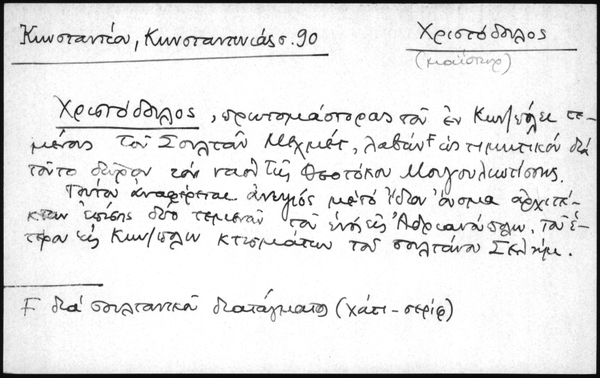 Κωνσταντίου, Κωνσταντινιάς σ. 90
Χριστόδουλος
(μαΐστωρ)
Χριστόδουλος, πρωτομάστορας τοῦ ἐν Κων/πόλει τε-
μένους τοῦ Σουλτὰν Μεχμέτ, λαβὼν F ὡς τιμητικὸν διὰ
τοῦτο δῶρον τὸν ναὸν τῆς Θεοτόκου Μουγουλιωτίσσης.
Τούτου ἀναφέρεται ἀνεψιὸς μὲ τὸ ἴδιον ὄνομα ἀρχιτέ-
κτων ἐπίσης δύο τεμενῶν τοῦ ἑνὸς εἰς Ἀδριανούπολιν, τοῦ ἑ-
τέρου εἰς Κων/πολιν κτισμάτων τοῦ σουλτάνου Σελήμ.
F διὰ σουλτανικοῦ διατάγματος (χάτι-σερίφ)